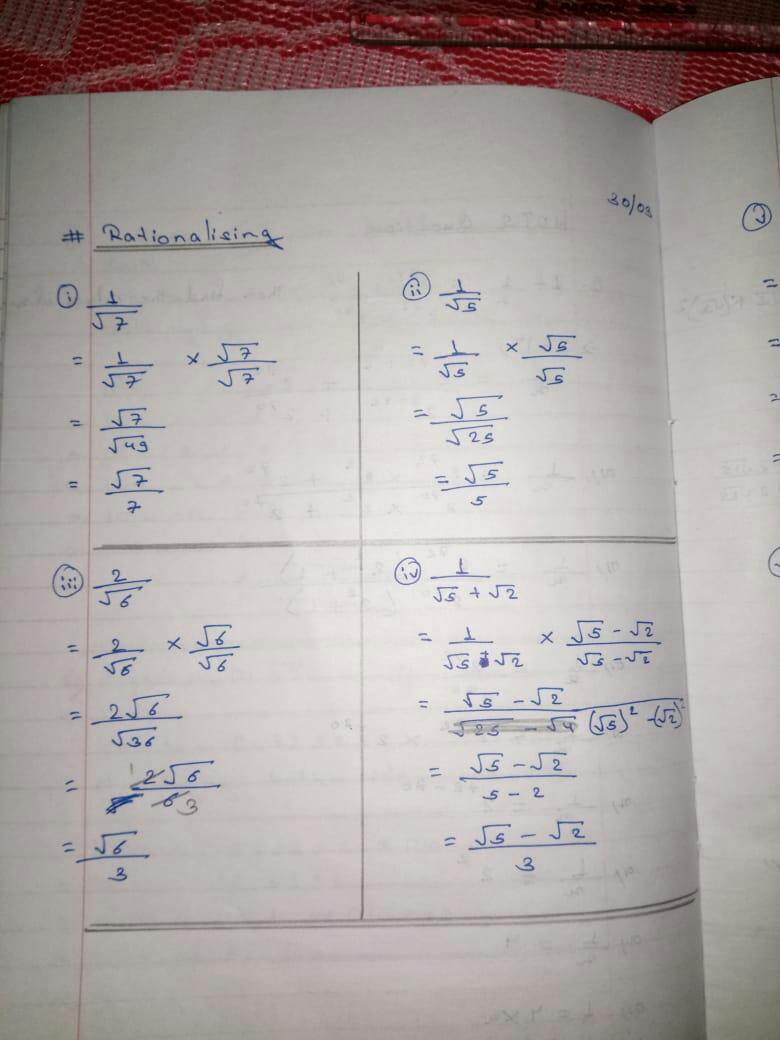 30/03
# Rationalising
(i) 1/√7
= 1/√7 × √7/√7
= √7/√49
= √7/7
(ii) 1/√5
= 1/√5 × √5/√5
= √5/√25
= √5/5
(iii) 2/√6
= 2/√6 × √6/√6
= 2√6/√36
= 2√6/6 1 3
= √6/3
(iv) 1/√5 + √2
= 1/√5 + √2 × √5 - √2/√5 - √2
= √5 - √2/√25 - √4 (√5)² - (√2)²
= √5 - √2/5 - 2
= √5 - √2/3